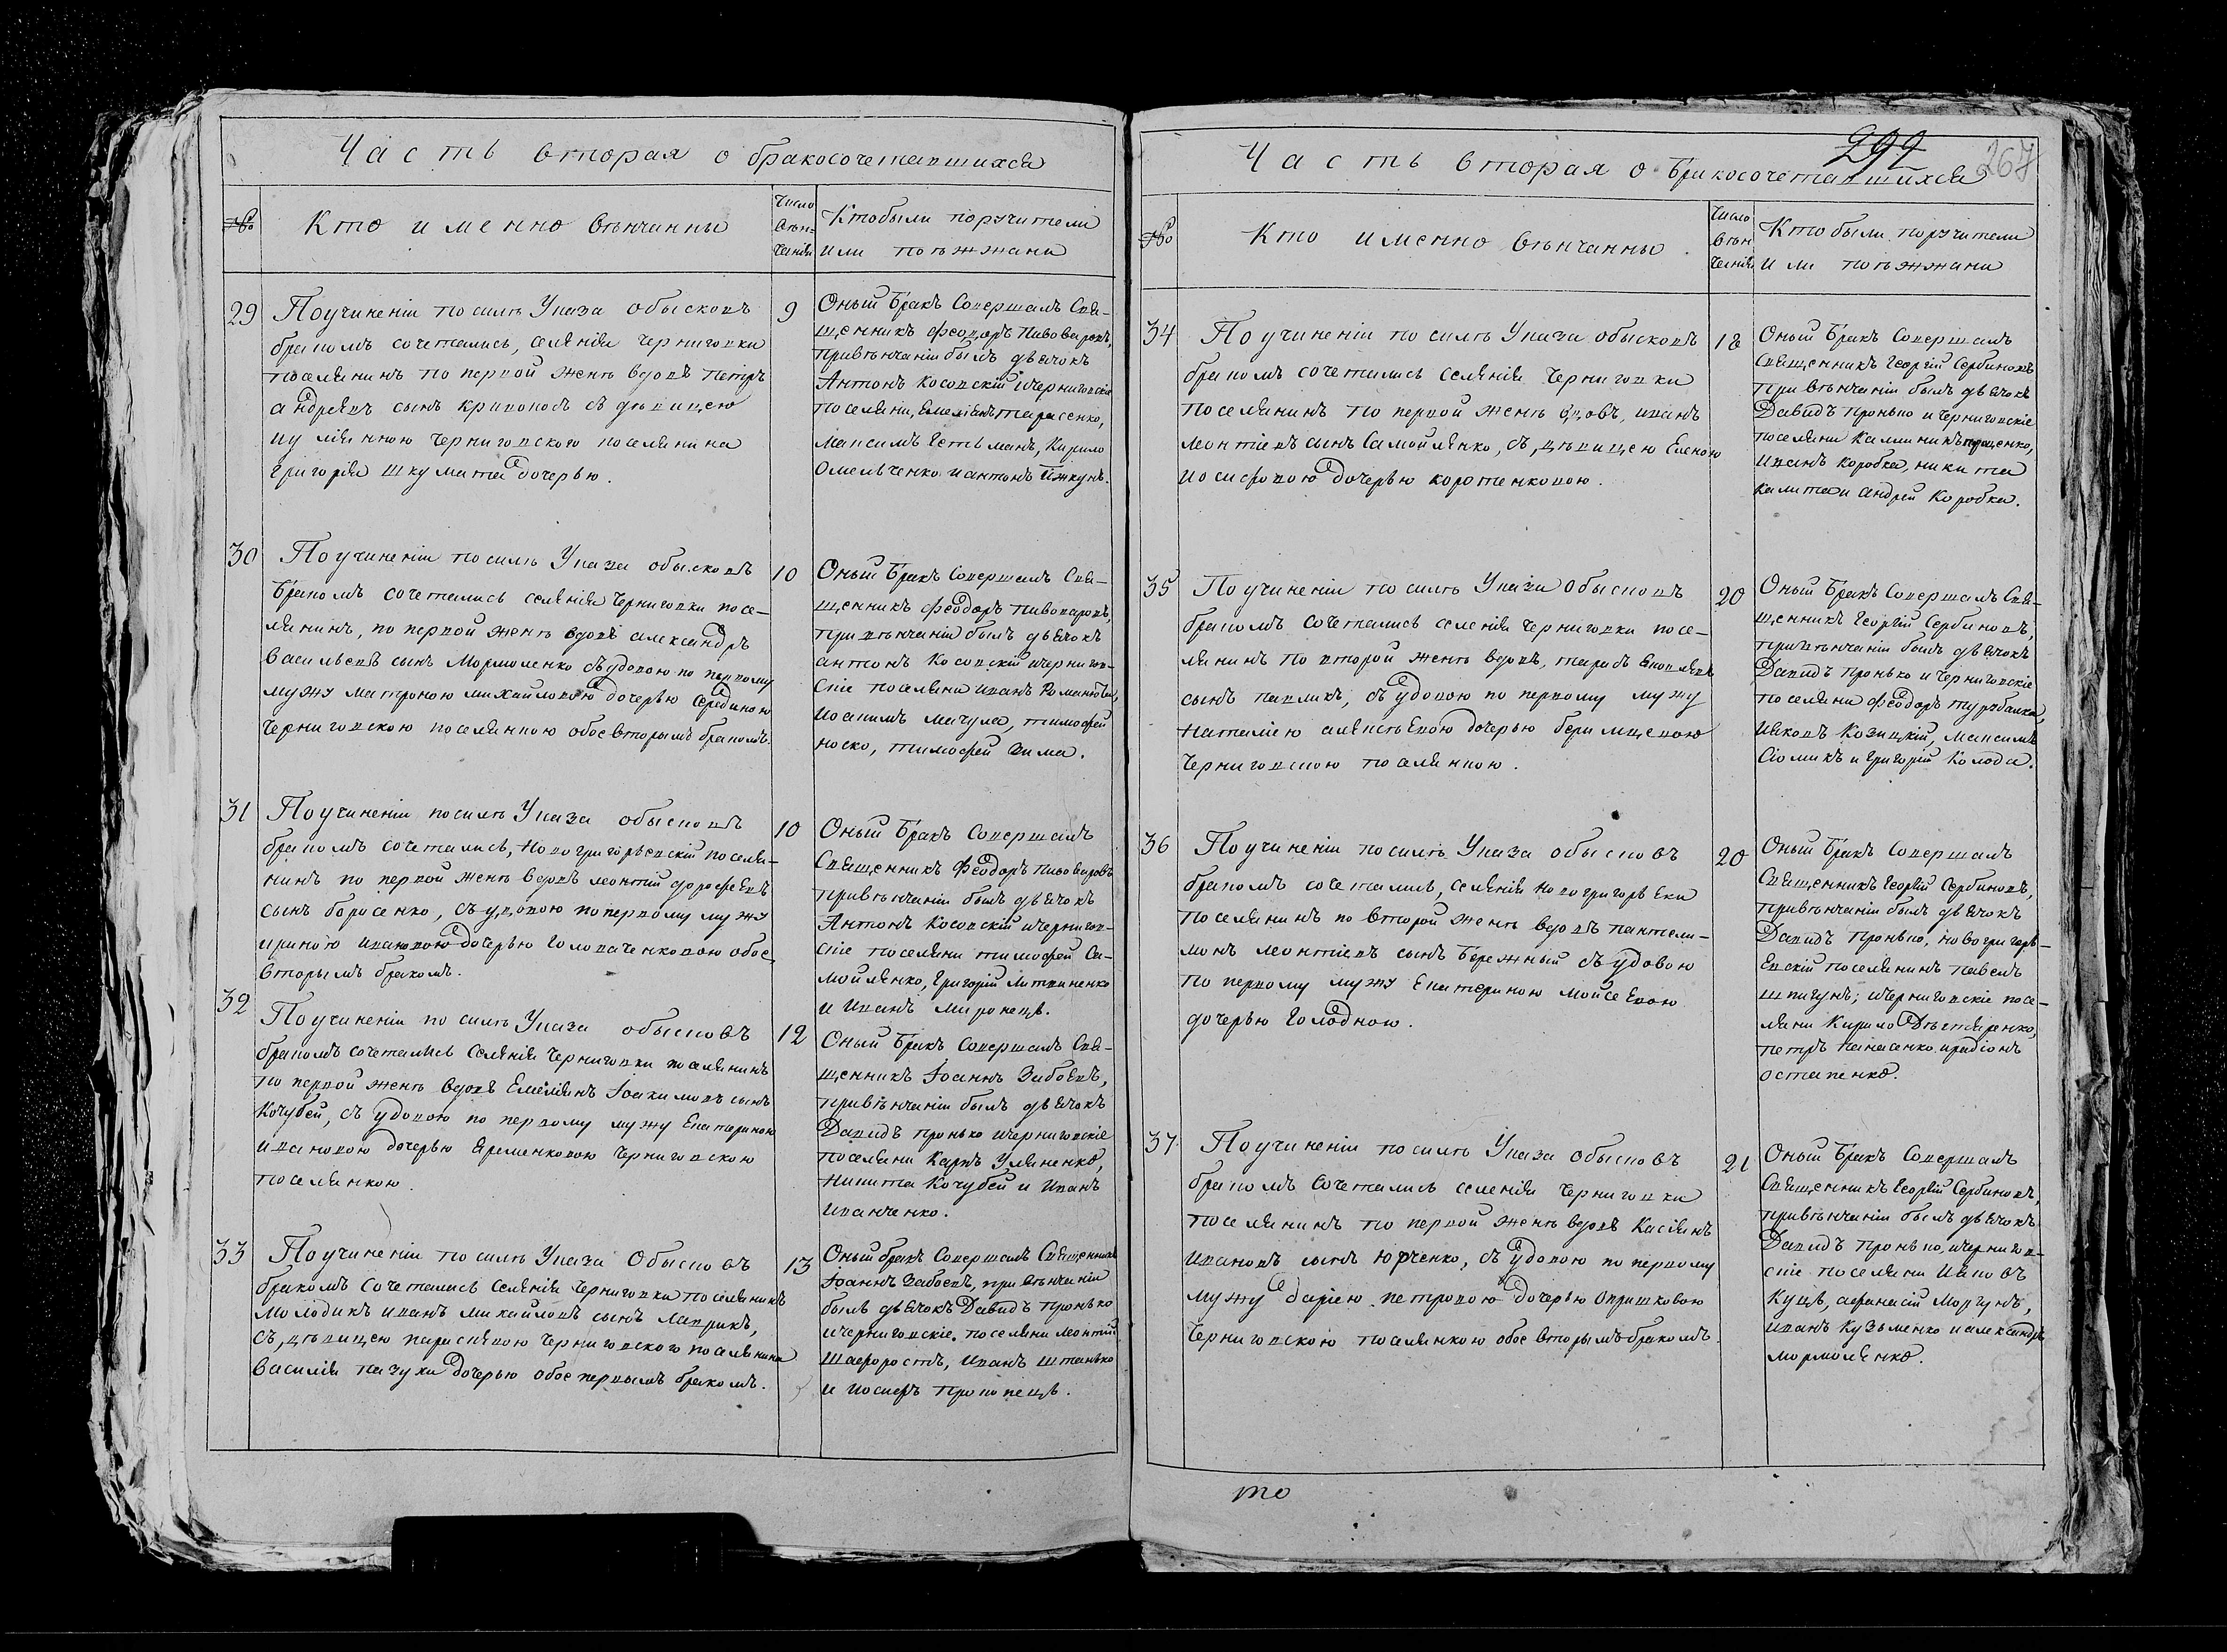 Часть вторая о бракосочетавшихся
№
Кто именно вѣнчанны
Число
вѣн-
чанія
Кто были поручители
или поѣжжани
29
По учиненіи по силѣ Указа обысковъ
бракомъ сочетались, селенія Черниговки
поселянинъ по первой женѣ вдовъ Петръ
Андреевъ сынъ Кривоносъ съ дѣвицею
Григорія Шкумата дочерью.
9
Оный бракъ совершалъ Свя-
щенникъ Феодоръ Пивоваровъ,
при вѣнчаніи былъ дьячокъ
Антонъ Косовскій и Черниговскіе
поселяни, Емеліянъ Тарасенко,
Максимъ Гетьманъ, Кирило
Омельченко и Антонъ
30
По учиненіи по силѣ Указа обысковъ
бракомъ сочетались селенія Черниговки посе-
лянинъ, по первой женѣ вдовъ Александръ
Васильевъ сынъ Мормоленко съ удовою по первому
мужу Матроною Михайловою дочерью Серединою
Черниговскою поселянкою обое вторымъ бракомъ.
10
Оный бракъ совершалъ Свя-
щенникъ Феодоръ Пивоваровъ,
при вѣнчаніи былъ дьячокъ
Антонъ Косовскій и Чернигов-
скіе поселяни Иванъ
Иоакимъ Мачула, Тимофей
Носко, Тимофей Зима.
31
По учиненіи по силѣ Указа обысковъ
бракомъ сочетались, Новогригорьевскій поселя-
нинъ по первой женѣ вдовъ Леонтій Дорофеевъ
сынъ Борисенко, съ удовою по первому мужу
Ириною Ивановою дочерью Головаченковою обое
вторымъ бракомъ.
10
Оный бракъ совершалъ
Священникъ Феодоръ Пивоваровъ
при вѣнчаніи былъ дьячокъ
Антонъ Косовскій и Чернигов-
скіе поселяни Тимофей Са-
мойленко, Григорій Литвиненко
и Иванъ Миронецъ.
32
По учиненіи по силѣ Указа обысковъ
бракомъ сочетались селенія Черниговки поселянинъ
по первой женѣ вдовъ Емеліянъ Іоакимовъ сынъ
Кочубей, съ удовою по первому мужу Екатериною
Ивановою дочерью Еременковою Черниговскою
поселянкою.
12
Оный бракъ совершалъ Свя-
щенникъ Іоаннъ Забоевъ,
при вѣнчаніи былъ дьячокъ
Давидъ Пронько и Черниговскіе
поселяни Карпъ Уляненко,
Никита Кочубей и Иванъ
Иванченко.
33
По учиненіи по силѣ Указа обысковъ
бракомъ сочетались селенія Черниговки поселянинъ
молодикъ Иванъ Михайловъ сынъ Лаврикъ,
съ, дѣвицею Параскевою Черниговского поселянина
Василія Пазухи дочерью обое первымъ бракомъ.
13
Оный бракъ совершалъ Священникъ
Іоаннъ Забоевъ, при вѣнчаніи
былъ дьячокъ Давидъ Пронько
и Черниговскіе поселяни Леонтій
Шафоростъ, Иванъ Штанько
и Иосифъ Прокопецъ.
292
267
Часть вторая о бракосочетавшихся
№
Кто именно вѣнчанны
Число
вѣн
чанія
Кто были поручители
или поѣжжани
34
По учиненіи по силѣ Указа обысковъ
бракомъ сочетались селенія Черниговки
поселянинъ по первой женѣ вдовъ, Иванъ
Леонтіевъ сынъ Самойленко, съ, дѣвицею Еленою
Иосифовою дочерью Коротенковою.
18
Оный бракъ совершалъ
Священникъ Георгій Сербиновъ
при вѣнчаніи былъ дьячокъ
Давидъ Пронько и Черниговскіе
поселяни Калиникъ
Иванъ Коробка, Никита
Калита и Андрей Коробка.
35
По учиненіи по силѣ Указа обысковъ
бракомъ сочетались селенія Черниговки посе-
лянинъ по второй женѣ вдовъ, Тарасъ Яковлевъ
сынъ Павликъ, съ удовою по первому мужу
Наталіею Алексѣевою дочерью
Черниговскою поселянкою.
20
Оный бракъ совершалъ Свя-
щенникъ Георгій Сербиновъ,
при вѣнчаніи былъ дьячокъ
Давидъ Пронько и Черниговскіе
поселяни Феодоръ Турубалка,
Иаковъ Козицкій, Максимъ
Сіомикъ и Григорій Колода.
36
По учиненіи по силѣ Указа обысковъ
бракомъ сочетались, селенія Новогригорьевки
поселянинъ по второй женѣ вдовъ Пантели-
монъ Леонтіевъ сынъ Бережный съ удовою
по первому мужу Екатериною Мойсеевою
дочерью Голодною.
20
Оный бракъ совершалъ
Священникъ Георгій Сербиновъ,
при вѣнчаніи былъ дьячокъ
Давидъ Пронько, Новогригорь-
евскій поселянинъ Павелъ
Шпигунъ; и Черниговскіе посе-
ляни Кирило Дѣгтяренко,
Петръ Панасенко и Радіонъ
Остапенко.
37
По учиненіи по силѣ Указа обысковъ
бракомъ сочетались селенія Черниговки
поселянинъ по первой женѣ вдовъ Касіянъ
Ивановъ сынъ Юрченко, съ удовою по первому
мужу Даріею Петровою дочерью Опришковою
Черниговскою поселянкою обое вторымъ бракомъ.
21
Оный бракъ совершалъ
Священникъ Георгій Сербиновъ,
при вѣнчаніи былъ дьячокъ
Давидъ Пронько, и Чернигов-
скіе поселяни Иаковъ
Куцъ, Афанасій Моргунъ,
Иванъ Кузьменко и Александръ
Мормоленко.
то